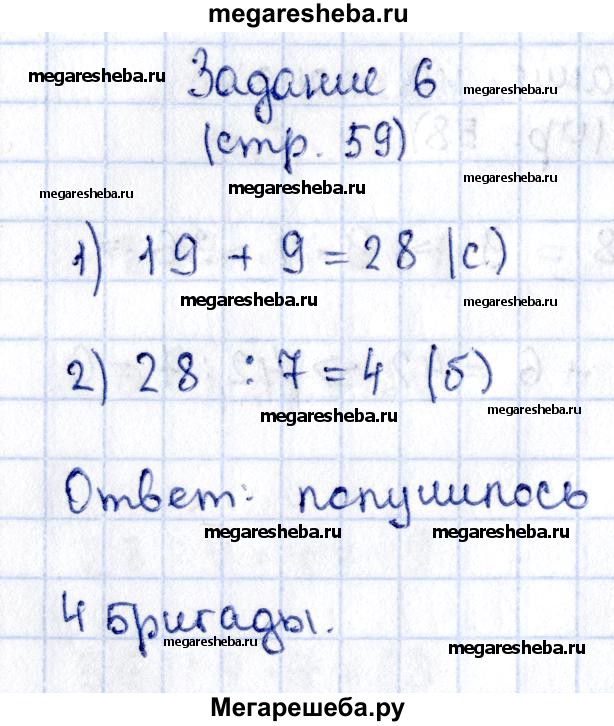 megaresheba.ru
Задание 6
megaresheba.ru megaresheba.ru
(стр. 59)
megaresheba.ru megaresheba.ru megaresheba.ru
1) 19 + 9 = 28 (с.)
megaresheba.ru megaresheba.ru
2) 28 : 7 = 4 (б)
megaresheba.ru megaresheba.ru
Ответ: получилось
megaresheba.ru megaresheba.ru
4 бригады.
megaresheba.ru megaresheba.ru
Мегарешеба.ру